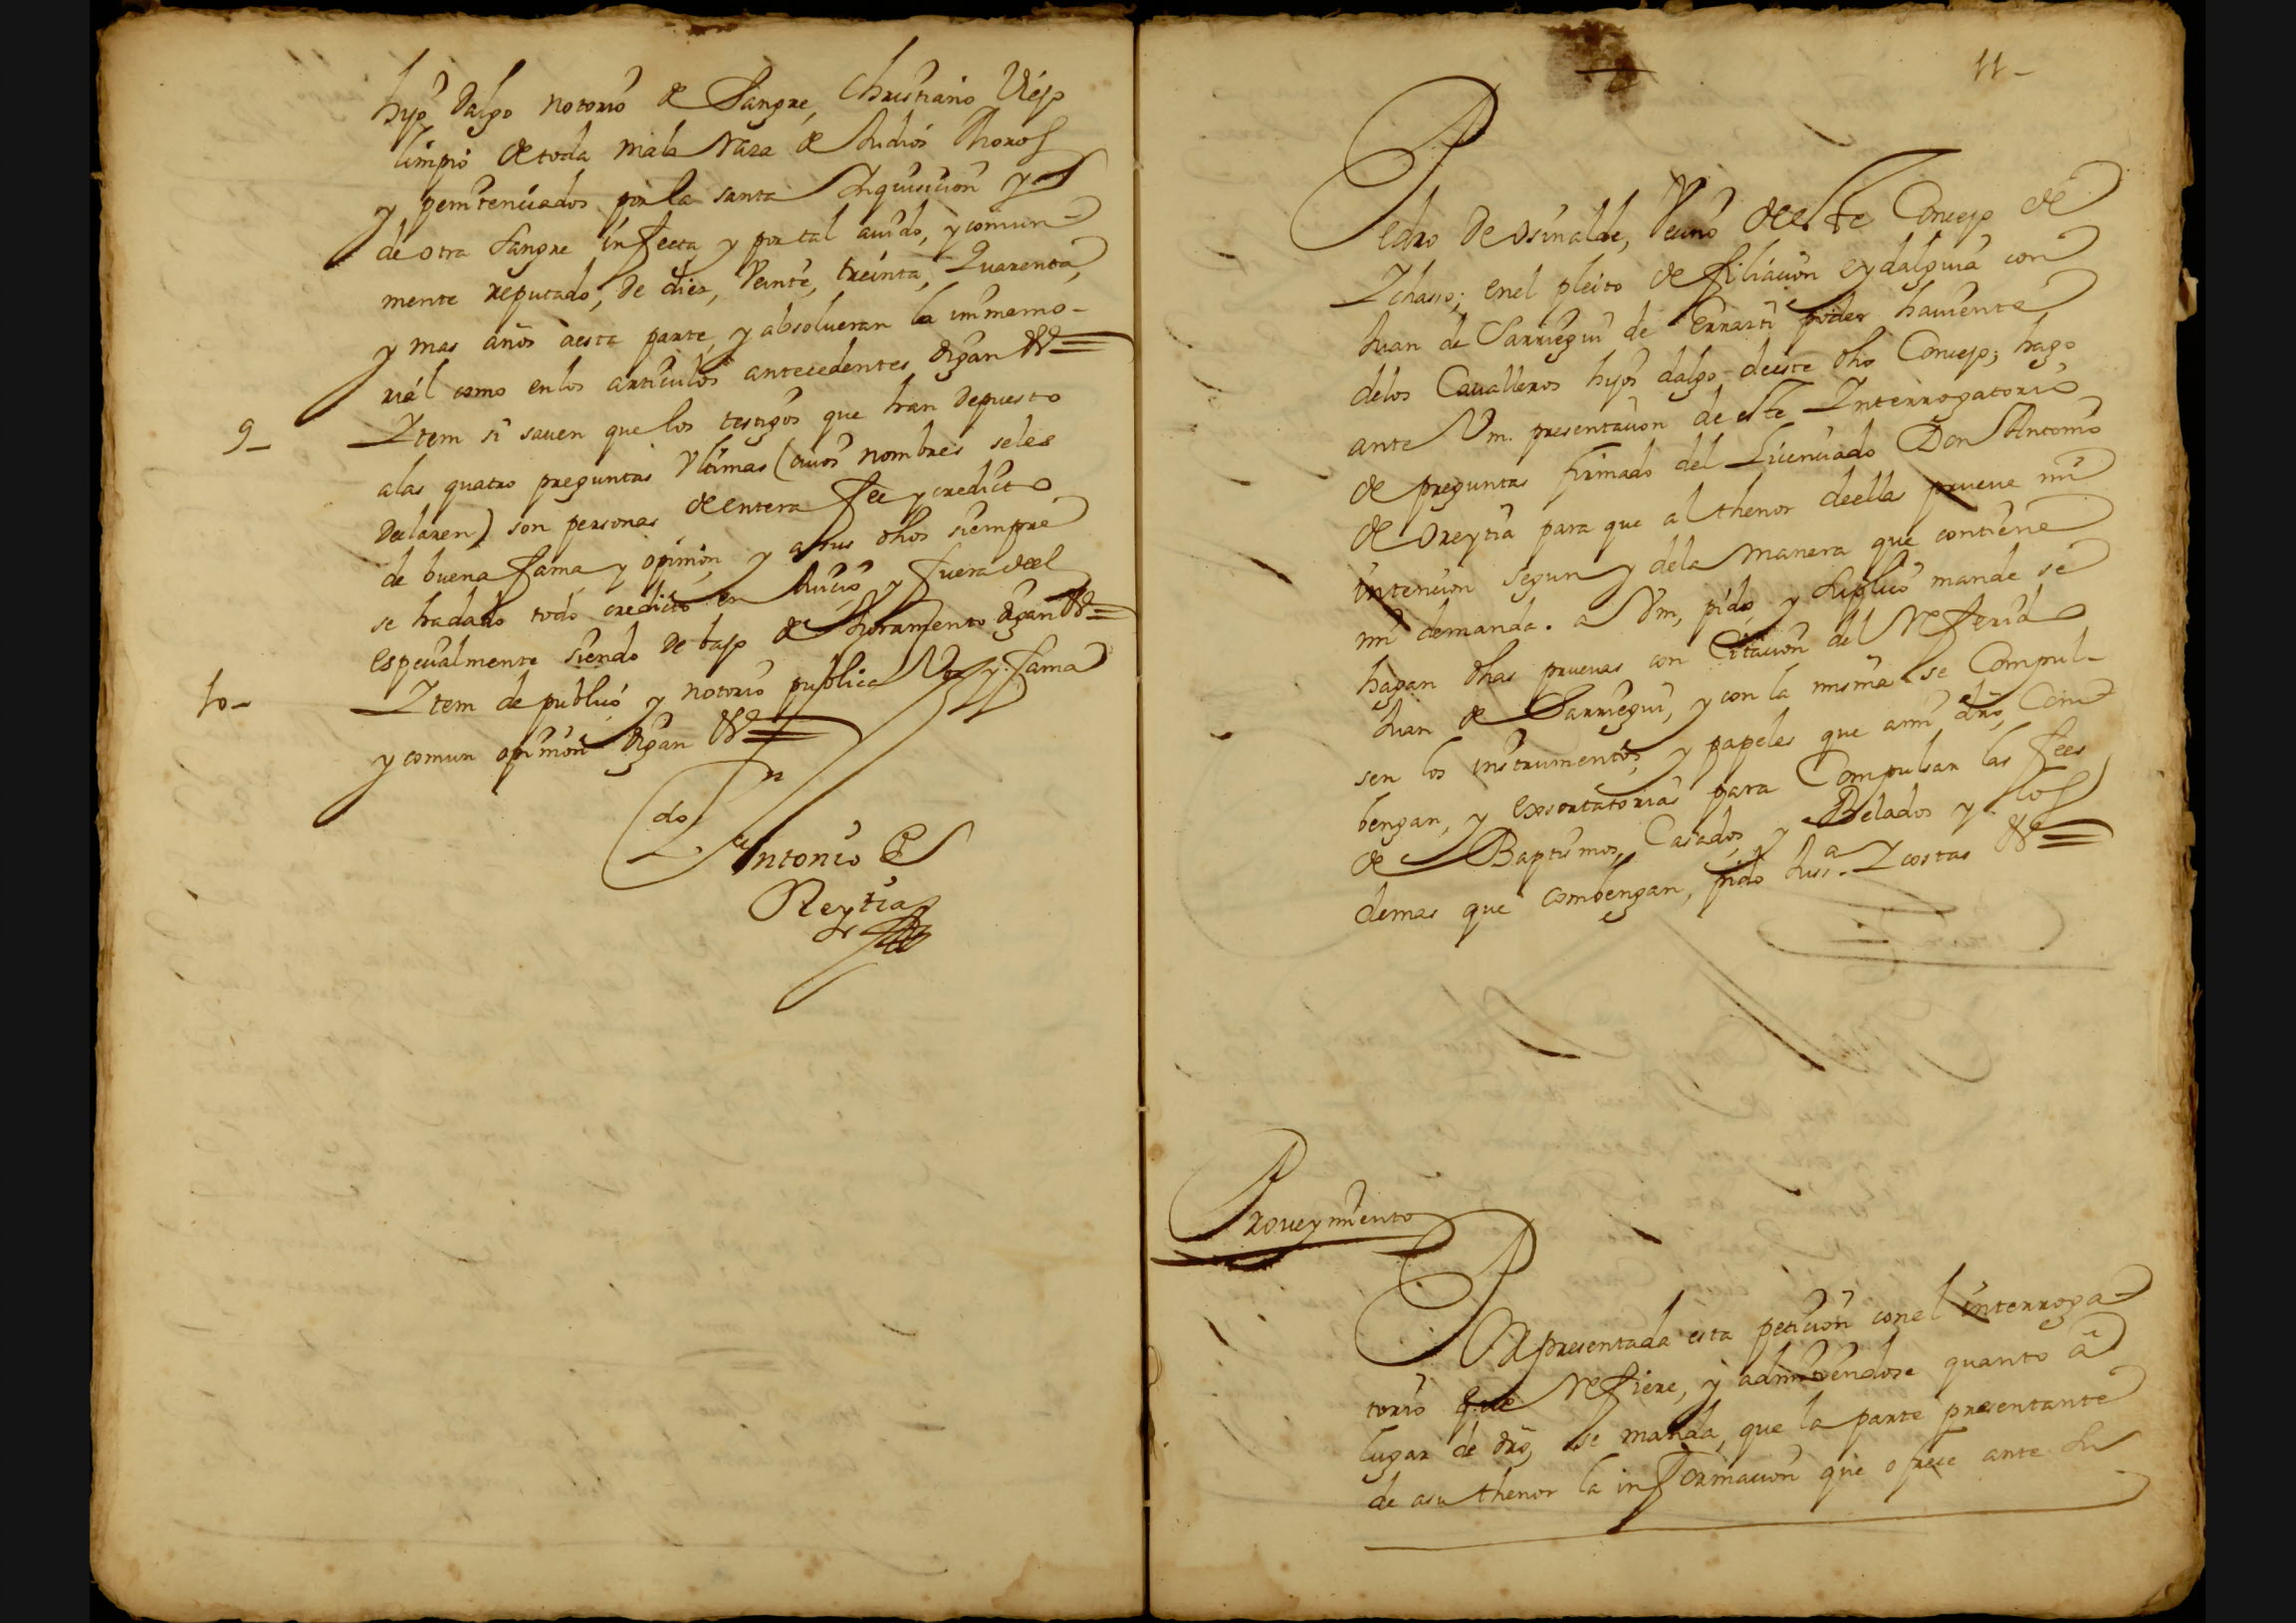 hijo dalgo notorio de Sangre, Christiano Viejo
limpio de toda mala raza de Judios Moros
y penitenciados por la santa Inquisicion y
de otra Sangre infecta y por tal auido, y comun-
mente reputado, de diez, Veinte, treinta, Quarenta,
y mas años aesta parte, y absolueran la immemo-
rial como en los articulos antecedentes digan &=
9_ Item si sauen que los testigos que han Depuesto
alas quatro preguntas Vltimas (cuios nombres seles
Declaren) son personas de entera fee y credicto
de buena fama y opinion, y a sus dhos siempre
se hadado todo credicto en Juicio, y fuera deel
especialmente siendo de bajo de Juramento digan &=
10_ Item de publico y notorio publica Voz y fama
y comun opinion digan &=
Ldo Dn
Antonio de
Oreytia
11_
Pedro de Osinalde, Vecino de este Concejo de
Ichaso; enel pleito de filiacion eydalguia con
Juan de Sarriegui de Errazti poder hauiente
delos Caualleros hijos dalgo deeste dho Concejo; hago
ante Vm. presentacion de este Interrogatorio
de preguntas firmado del Licenciado Don Antonio
de Oreytia para que al thenor deellas prueue mi
intencion segun y dela manera que contiene
mi demanda. a Vm, pido, y suplico mande se
hagan dhas prueuas con Citacion del Referido
Juan de Sarriegui, y con la misma se Compul-
sen los instrumentos, y papeles que ami dro, Com-
bengan, y exsortatorias para Compulsar las fees
de Baptismos, Casados, y Belados y los
demas que combengan, pido Jusa. Y costas &=
Proueymiento
Por presentada esta peticion conel interroga-
torio que Refiere, y admitiendose quanto à
lugar de dro, se manda, que la parte presentante
de asu thenor la informacion que ofrece ante su